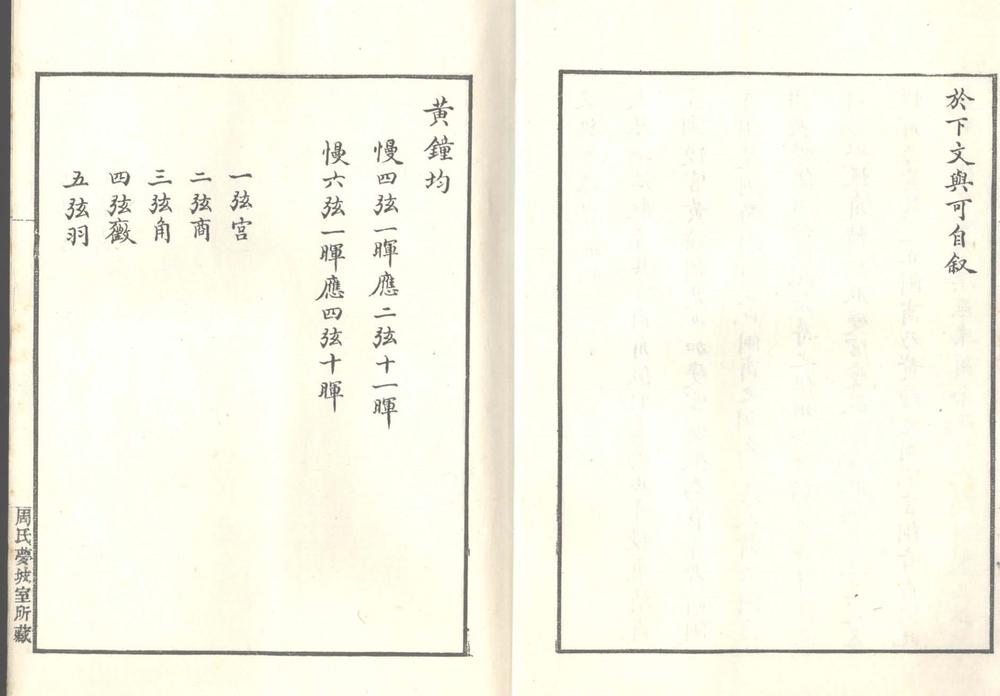 於下文與可自叙
黃鐘均
慢四弦一暉應二弦十一暉
慢六弦一暉應四弦十暉
一弦宮
二弦商
三弦角
四弦徵
五弦羽
周氏夢坡室所藏